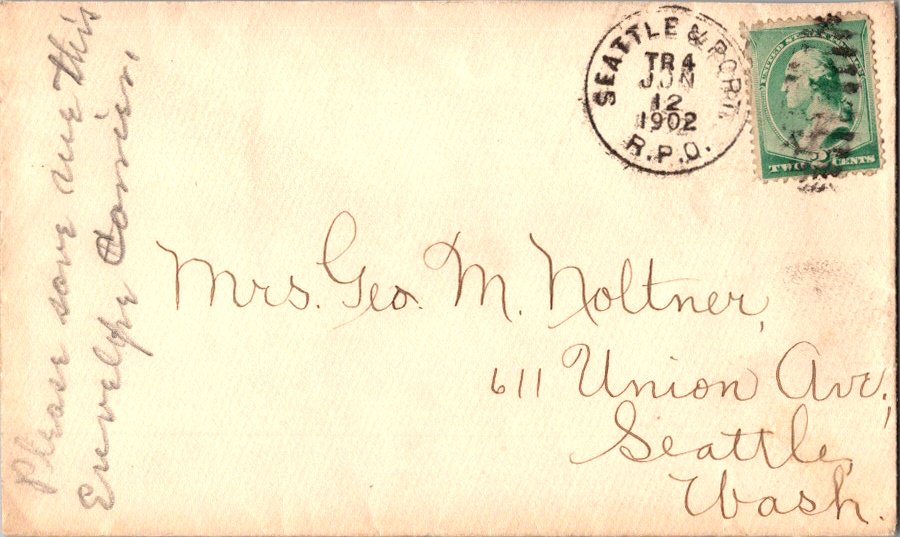 Please save me this
Envelope Carrier,
SEATTLE & PORT.
TR 4
JUN
12
1902
R.P.O.
UNITED STATES
TWO 2 CENTS
Mrs. Geo. M. Noltner,
611 Union Ave,
Seattle,
Wash.